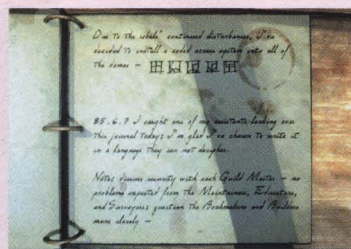 Due to the rebels' continued disturbances, I've
decided to install a coded access system into all of
the domes –
85.6.7 I caught one of my assistants looking over
this journal today. I'm glad I've chosen to write it
in a language they can not decipher.
Notes: discuss security with each Guild Master – no
problems expected from the Maintainers, Educators,
and Surveyors; question the Bookmakers and Builders
more closely –